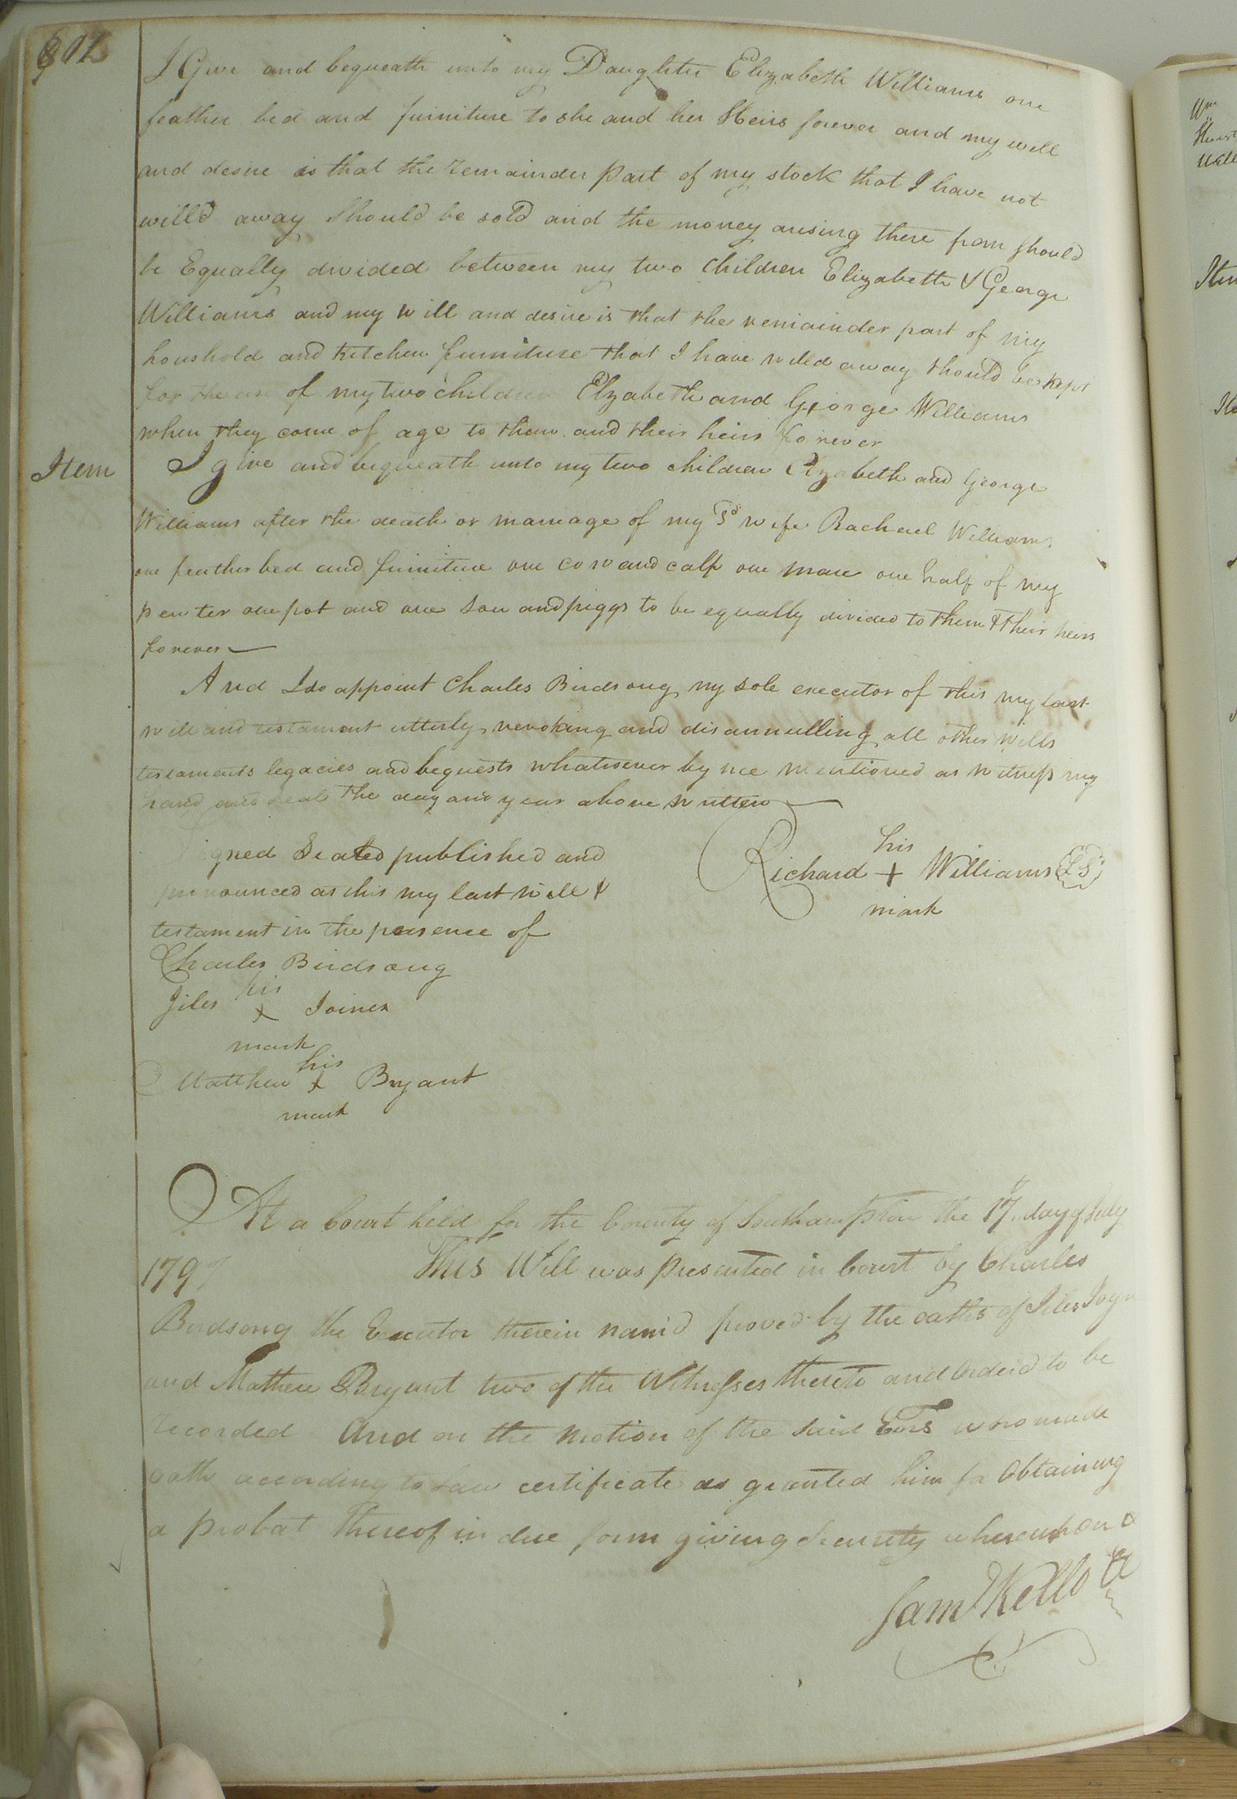 I Give and bequeath unto my Daughter Elizabeth Williams one
feather bed and furniture to she and her Heirs forever and my will
and desire is that the remainder part of my stock that I have not
will'd away should be sold and the money arising there from should
be Equally divided between my two Children Elizabeth & George
Williams and my will and desire is that the remainder part of my
houshold and kitchen furniture that I have willed away should be kept
for the use of my two children Elzabeth and George Williams
when they come of age to them and their heirs forever
Item I give and bequeath unto my two children Elzabeth and George
Williams after the death or marriage of my Sd wife Rachael Williams
one feather bed and furniture one cow and calf one mare one half of my
pewter one pot and one sow and piggs to be equally divided to them & their heirs
forever
And I do appoint Charles Birdsong my sole executor of this my last
will and testament utterly revoking and disannulling all other wills
testaments legacies and bequests whatsoever by me mentioned as witness my
hand and seal the day and year above written
Signed Sealed published and
pronounced as this my last will &
testament in the presence of
his
Richard + Williams (LS)
mark
Charles Birdsong
his
Jiles x Joiner
mark
his
Matthew x Bryant
mark
At a Court held for the County of Southampton the 17th day of July
179
This Will was presented in Court by Charles
Birdsong the Executor therein nam'd proved by the oaths of Jiles
and Mathew Bryant two of the Witnesses thereto and orderd to be
recorded And on the motion of the said Exors who made
oath according to law certificate is granted him for Obtaining
a probat thereof in due form giving Security whereupon &
Saml Kello Cl